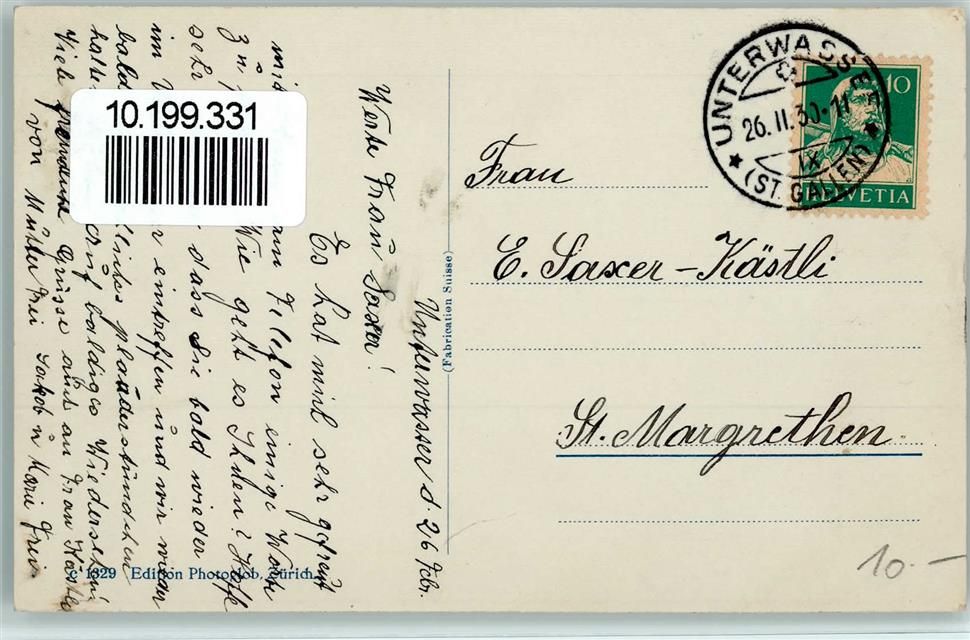 Unterwasser d. 26 Febr.
Werte Frau Saxer!
Es hat mich sehr gefreut
mit am Telefon einige Worte
z Wie geht es Ihnen? Hoffe
sehr dass Sie bald wieder
im eintreffen und wir wieder
bald plauderstündchen
halte baldiges Wiedersehen
Viele Grüsse auch an Frau Kästli
von Mutter Frei Jakob u Marie Frei
10.199.331
UNTERWASSER
26.II.30.-11
IX
(ST. GALLEN)
10
HELVETIA
Frau
E. Saxer-Kästli
St. Margrethen.
(Fabrication Suisse)
c 1329 Edition Photoglob, Zürich
10.-